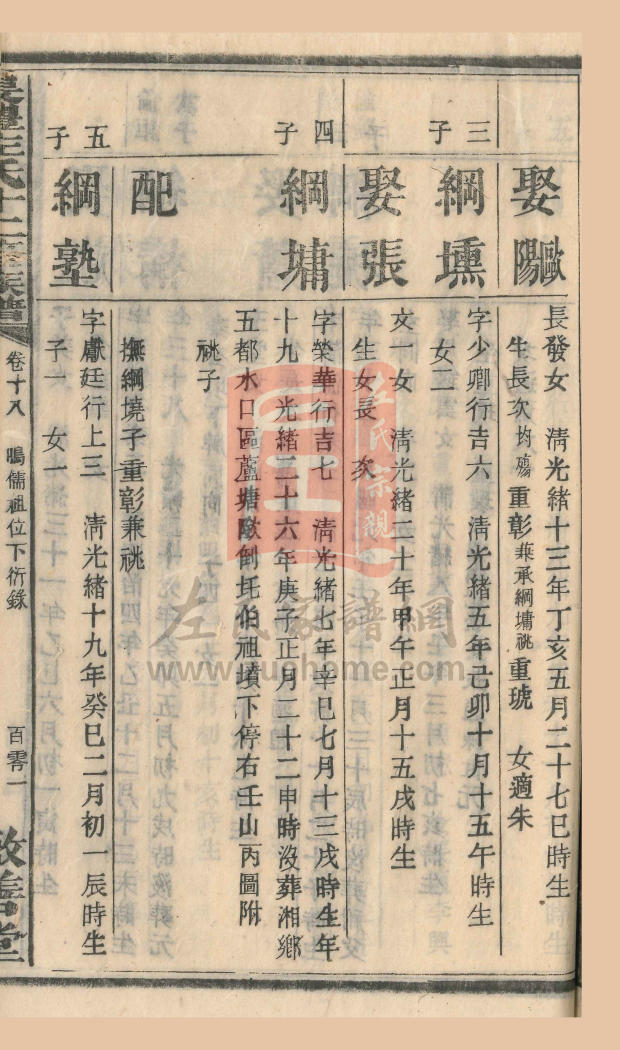 娶歐陽
長發女 清光緒十三年丁亥五月二十七巳時生
生長次均殤重彰兼承綱墉祧重琥 女適朱
三子
綱壎
字少卿行吉六 清光緒五年己卯十月十五午時生
女二
娶張
文一女 清光緒二十年甲午正月十五戌時生
生女長 次
四子
綱墉
字榮華行吉七 清光緒七年辛巳七月十三戌時生年
十九 光緒二十六年庚子正月二十二申時沒葬湘鄉
五都水口區蘆塘歐倒圫伯祖墳下停右壬山丙圖附
祧子
配
撫綱墝子重彰兼祧
五子
綱塾
字獻廷行上三 清光緒十九年癸巳二月初一辰時生
子一 女一
左氏十二修族譜
卷十八 鳴儒祖位下衍錄
百零一
敦善堂
左氏宗親
左氏家譜網
www.zuohome.com